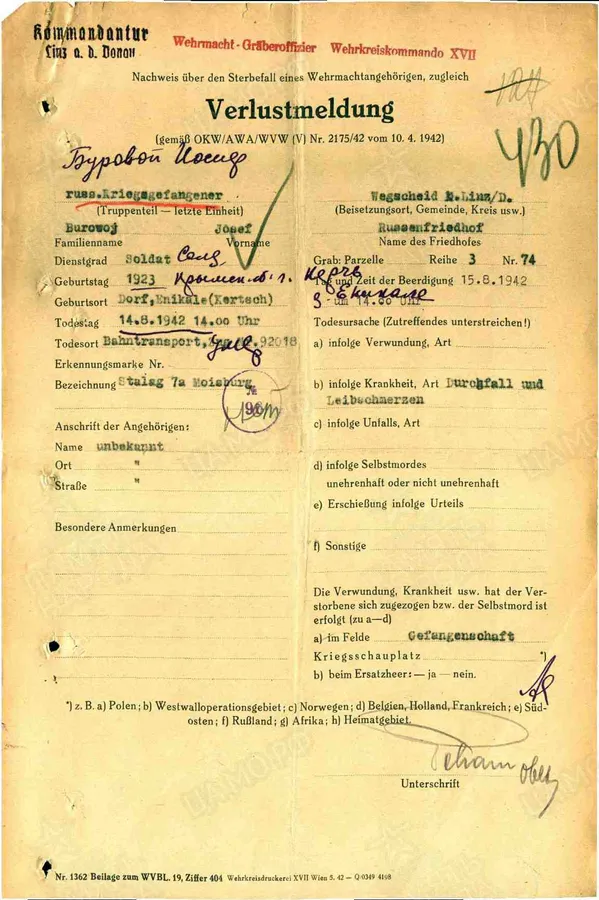 Kommandantur
Linz a. d. Donau
Wehrmacht-Gräberoffizier Wehrkreiskommando XVII
Nachweis über den Sterbefall eines Wehrmachtangehörigen, zugleich
Verlustmeldung
(gemäß OKW/AWA/WVW (V) Nr. 2175/42 vom 10. 4. 1942)
430
Буровой Иосиф
russ.Kriegsgefangener
(Truppenteil — letzte Einheit)
Burowoj Josef
Familienname Vorname
Dienstgrad Soldat Солд
Geburtstag 1923 Крымск. г. Керчь
Geburtsort Dorf, Enikale(Kertsch) Еникале
Todestag 14.8.1942 14.00 Uhr
Todesort Bahntransport, Zug Nr. 92018
Erkennungsmarke Nr.
Bezeichnung Stalag 7a Moisburg
№
96
Anschrift der Angehörigen:
Name unbekannt
Ort "
Straße "
Besondere Anmerkungen
Wegscheid b.Linz/D.
(Beisetzungsort, Gemeinde, Kreis usw.)
Russenfriedhof
Name des Friedhofes
Grab: Parzelle Reihe 3 Nr. 74
Tag und Zeit der Beerdigung 15.8.1942
um 14.00 Uhr
Todesursache (Zutreffendes unterstreichen!)
a) infolge Verwundung, Art
b) infolge Krankheit, Art Durchfall und
Leibschmerzen
c) infolge Unfalls, Art
d) infolge Selbstmordes
unehrenhaft oder nicht unehrenhaft
e) Erschießung infolge Urteils
f) Sonstige
Die Verwundung, Krankheit usw. hat der Ver-
storbene sich zugezogen bzw. der Selbstmord ist
erfolgt (zu a—d)
a) im Felde Gefangenschaft
Kriegsschauplatz *)
b) beim Ersatzheer: — ja — nein.
*) z. B. a) Polen; b) Westwalloperationsgebiet; c) Norwegen; d) Belgien, Holland, Frankreich; e) Süd-
osten; f) Rußland; g) Afrika; h) Heimatgebiet.
Unterschrift
Nr. 1362 Beilage zum WVBL. 19, Ziffer 404 Wehrkreisdruckerei XVII Wien 5. 42 — Q 0349 4108